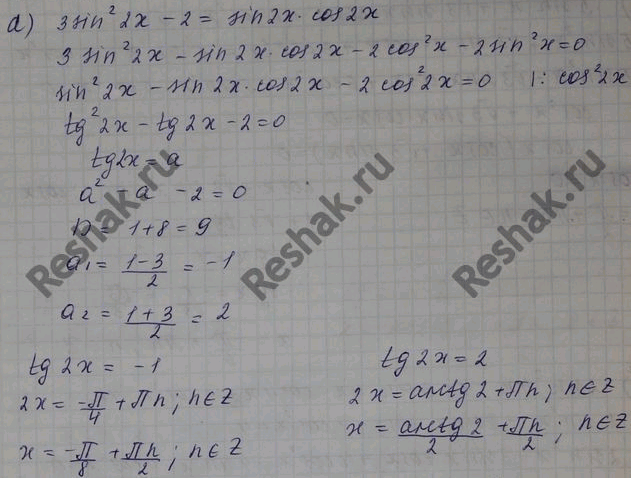 а) 3 sin² 2x - 2 = sin 2x · cos 2x
3 sin² 2x - sin 2x · cos 2x - 2 cos² x - 2 sin² x = 0
sin² 2x - sin 2x · cos 2x - 2 cos² 2x = 0 |: cos² 2x
tg² 2x - tg 2x - 2 = 0
tg 2x = a
a² - a - 2 = 0
D = 1 + 8 = 9
a₁ = (1 - 3)/2 = -1
a₂ = (1 + 3)/2 = 2
tg 2x = -1
2x = -π/4 + πn; n ∈ Z
x = -π/8 + πn/2; n ∈ Z
tg 2x = 2
2x = arctg 2 + πn; n ∈ Z
x = arctg 2/2 + πn/2; n ∈ Z
Reshak.ru
Reshak.ru
Reshak.ru